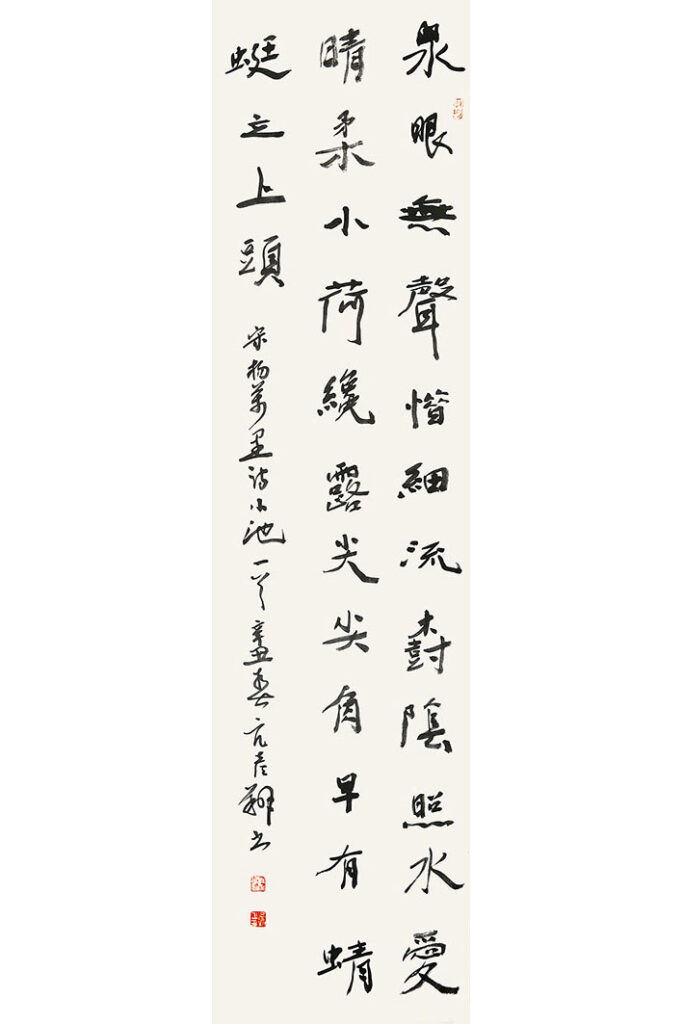 泉眼無聲惜細流樹陰照水愛
晴柔小荷纔露尖尖角早有蜻
蜓立上頭 宋楊萬里詩小池一首辛丑春亢彥翔書